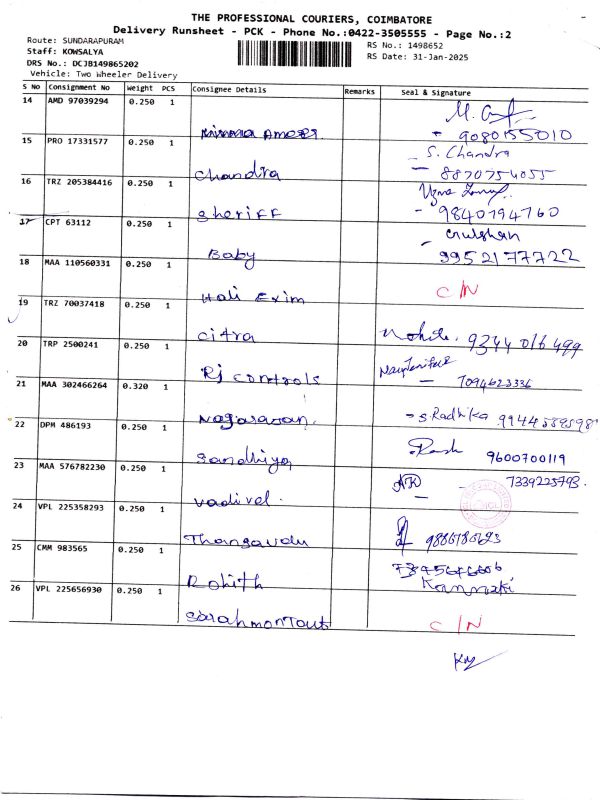 THE PROFESSIONAL COURIERS, COIMBATORE
Delivery Runsheet - PCK - Phone No.:0422-3505555 - Page No.:2
Route: SUNDARAPURAM
RS No.: 1498652
Staff: KOWSALYA
RS Date: 31-Jan-2025
DRS No.: DCJB149865202
Vehicle: Two Wheeler Delivery
S No Consignment No Weight PCS Consignee Details Remarks Seal & Signature
14 AMD 97039294 0.250 1
9080155010
15 PRO 17331577 0.250 1 Chandra S. Chandra
8870754055
16 TRZ 205384416 0.250 1 Sheriff
9840794760
17 CPT 63112 0.250 1 Baby
9952177722
18 MAA 110560331 0.250 1 Hali Exim C/N
19 TRZ 70037418 0.250 1 Citra 9344 016 499
20 TRP 2500241 0.250 1 Rj controls
7094623336
21 MAA 302466264 0.320 1 Nagarasan. S. Radhika
22 DPM 486193 0.250 1 Sandhiya 9600700119
23 MAA 576782230 0.250 1 Vadivel. 7339225793.
24 VPL 225358293 0.250 1 Thangavelu
25 CMM 983565 0.250 1 Rohith
26 VPL 225656930 0.250 1 C/N